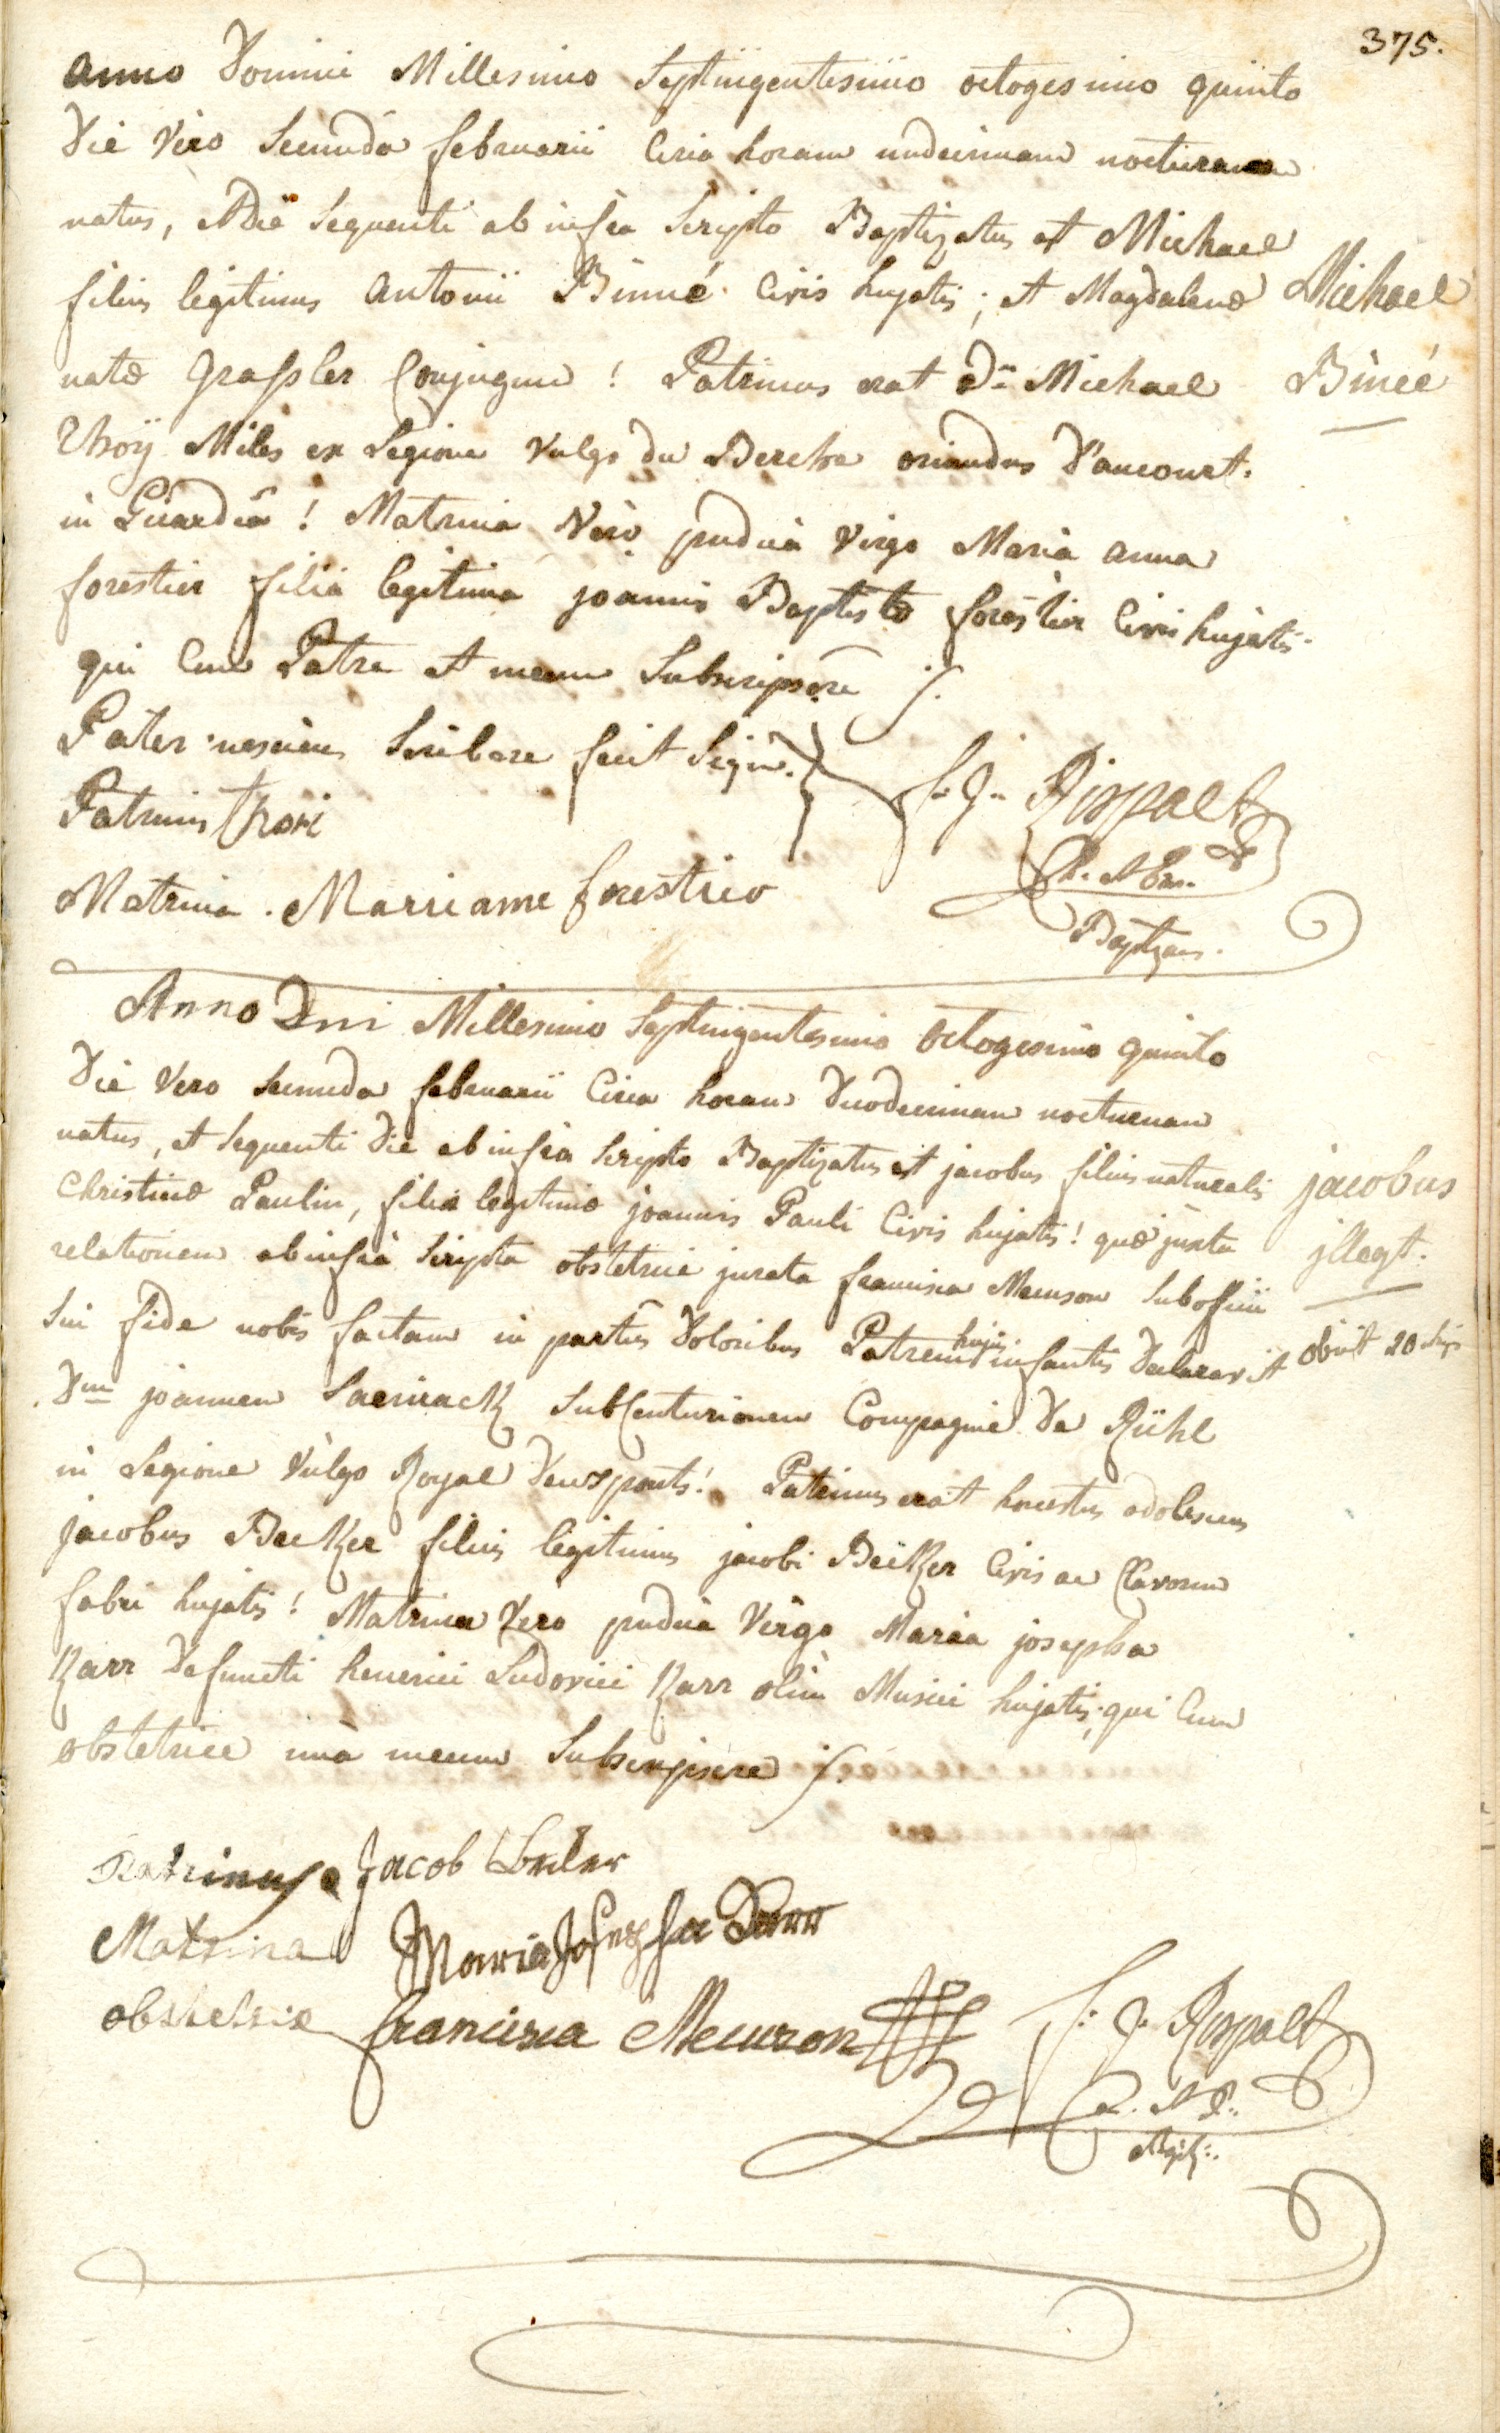 375.
anno Domini Millesimo Septuigentesimo octogesimo quinto
Die Vero Secunda februarii Circa horam undecimam nocturnam
natus, et Die sequenti ab infra scripto Baptizatus est Michael
filius legitimus Antonii Binné Civis hujatis; et Magdalenæ
Michael
natæ Grassler Conjugum! Patrinus erat Dn Michael
Binée
Thorÿ Miles ex Legione Vulgo du Perche oriundus D'aucourt
in Picardiâ! Matrina Vero pudica Virgo Maria anna
forestier filia legitima joannis Baptistæ forestier Civis hujatis
qui Cum Patre et mecum Subscripsere ⁒.
Pater nesciens Scribere fecit Sign.
Patrinus thori
f. j. Rispalt
Matrina. Marie anne forestier
Baptizans.
Anno Dni Millesimo Septuigentesimo Octogesimo quinto
Die Vero secunda februarii Circa horam Duodecimam nocturnam
natus, et sequenti Die ab infra scripto Baptizatus est jacobus filius naturalis
jacobus
Christinæ Paulin, filiæ legitimæ joannis Pauli Civis hujatis! quæ juxta
jllegt.
relationem ab infra scripta obstetrice jurata francisca Meurson sub officii
sui fide nobis factam in partûs Doloribus Patrem hujus infantis Declaravit
obiit 20 hujs
Dnm joannem SubCenturionem Compagnie De Rühl
in Legione Vulgo Royal Deuxponts! Patrinus erat honestus adolescens
jacobus Becker filius legitimus jacobi Becker Civis ac Clavorum
fabri hujatis! Matrina Vero pudica Virgo Maria josepha
Karr Defuncti henrici Ludovici Karr olim Musici hujatis; qui Cum
obstetrice unà mecum Subscripsere ⁒.
Patrinus Jacob
Matrina Maria Josepha Karr
obstetrix francisca Meurson
f. j. Rispalt